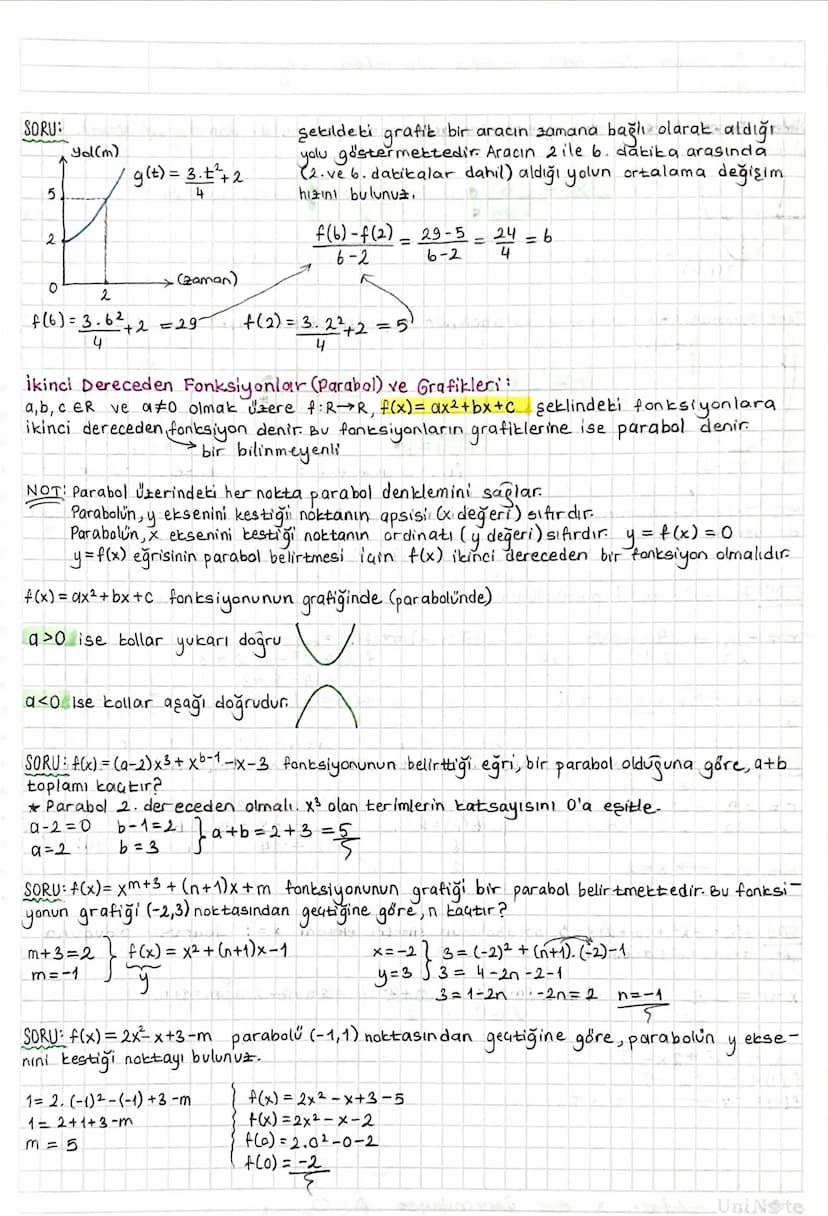 SORU:
Yol(m)
g(t) = 3.t²/4 + 2
5
2
0
2
(zaman)
şekildeki grafik bir aracın zamana bağlı olarak aldığı
yolu göstermektedir. Aracın 2 ile 6. dakika arasında
(2. ve 6. dakikalar dahil) aldığı yolun ortalama değişim
hızını bulunuz.
f(6)-f(2)/6-2 = 29-5/6-2 = 24/4 = 6
f(6) = 3.6²/4 + 2 = 29 f(2) = 3.2²/4 + 2 = 5
İkinci Dereceden Fonksiyonlar (Parabol) ve Grafikleri:
a,b,c ∈R ve a≠0 olmak üzere f:R→R, f(x)=ax²+bx+c şeklindeki fonksiyonlara
ikinci dereceden fonksiyon denir. Bu fonksiyonların grafiklerine ise parabol denir.
→ bir bilinmeyenli
NOT: Parabol üzerindeki her nokta parabol denklemini sağlar.
Parabolün, y eksenini kestiği noktanın apsisi (x değeri) sıfırdır.
Parabolün, x eksenini kestiği noktanın ordinatı (y değeri) sıfırdır. y = f(x) = 0
y=f(x) eğrisinin parabol belirtmesi için f(x) ikinci dereceden bir fonksiyon olmalıdır.
f(x) = ax²+bx+c fonksiyonunun grafiğinde (parabolünde)
a>0 ise kollar yukarı doğru
a<0 ise kollar aşağı doğrudur.
SORU: f(x) = (a-2)x³ + x^b-1 - x - 3 fonksiyonunun belirttiği eğri, bir parabol olduğuna göre, a+b
toplamı kaçtır?
★ Parabol 2. dereceden olmalı. x³ olan terimlerin katsayısını 0'a eşitle.
a-2=0 b-1=2 } a+b = 2+3 = 5
a=2 b=3
SORU: f(x) = x^m+3 + (n+1)x + m fonksiyonunun grafiği bir parabol belirtmektedir. Bu fonksi-
yonun grafiği (-2,3) noktasından geçtiğine göre, n kaçtır?
m+3=2 } f(x) = x² + (n+1)x - 1 x=-2 } 3 = (-2)² + (n+1).(-2) - 1
m=-1 y y=3 3 = 4 - 2n - 2 - 1
3 = 1-2n -2n = 2 n=-1
SORU: f(x) = 2x² - x + 3 - m parabolü (-1,1) noktasından geçtiğine göre, parabolün y ekse-
nini kestiği noktayı bulunuz.
1 = 2.(-1)² - (-1) + 3 - m
1 = 2+1+3-m
m = 5
f(x) = 2x² - x + 3 - 5
f(x) = 2x² - x - 2
f(0) = 2.0² - 0 - 2
f(0) = -2
UniNote